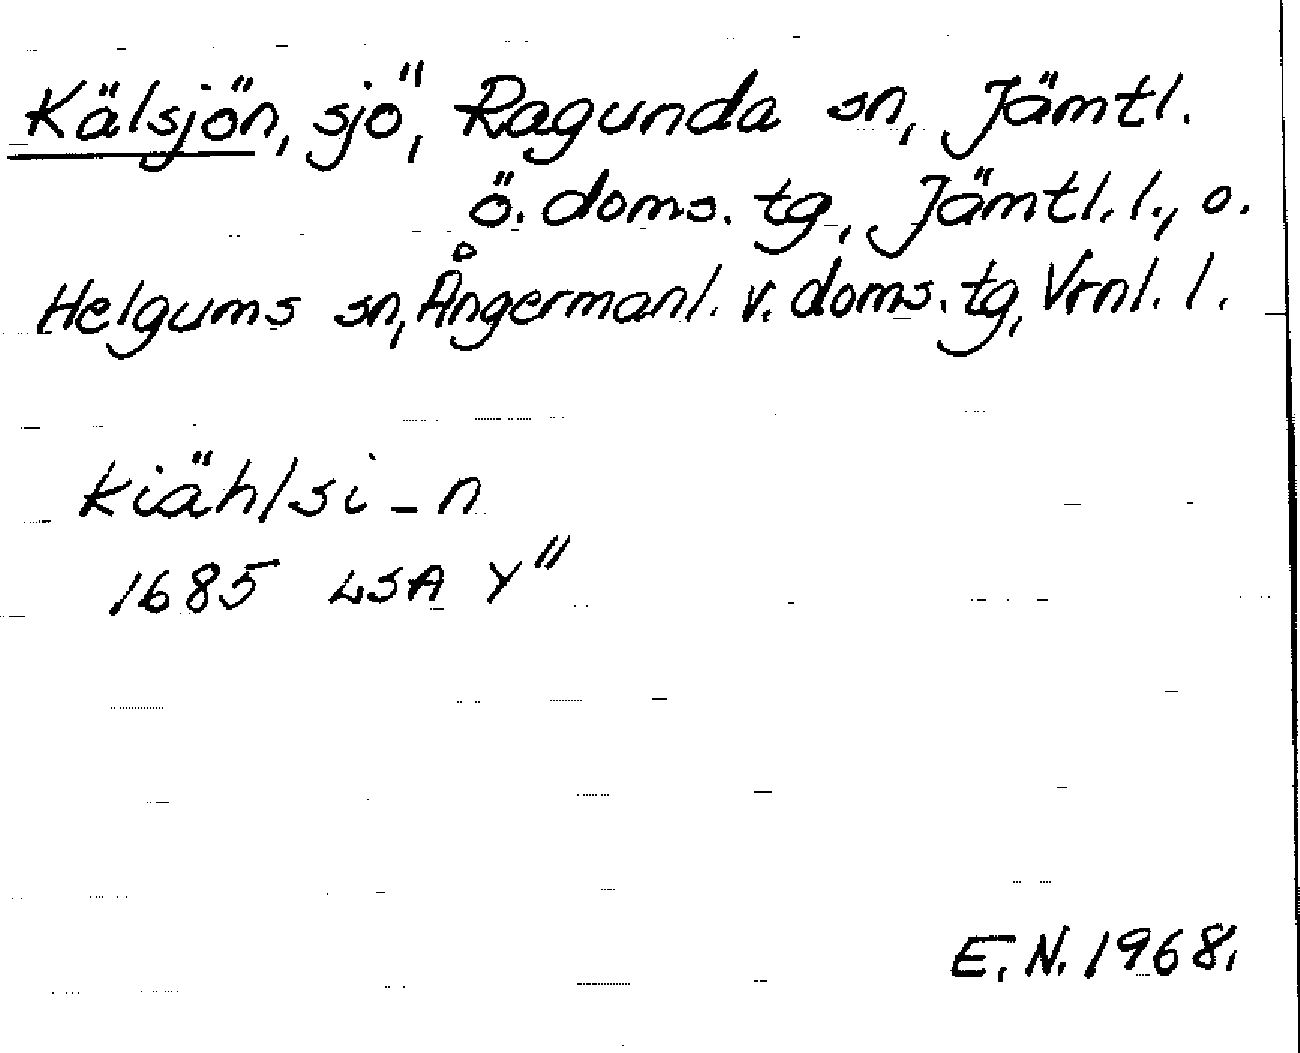 Kälsjön, sjö, Ragunda sn, Jämtl.
ö. doms. tg, Jämtl. l., o.
Helgums sn, Ångermanl. v. doms. tg, Vrnl. l.
Kiählsi-n
1685 LSA Y"
E.N. 1968.